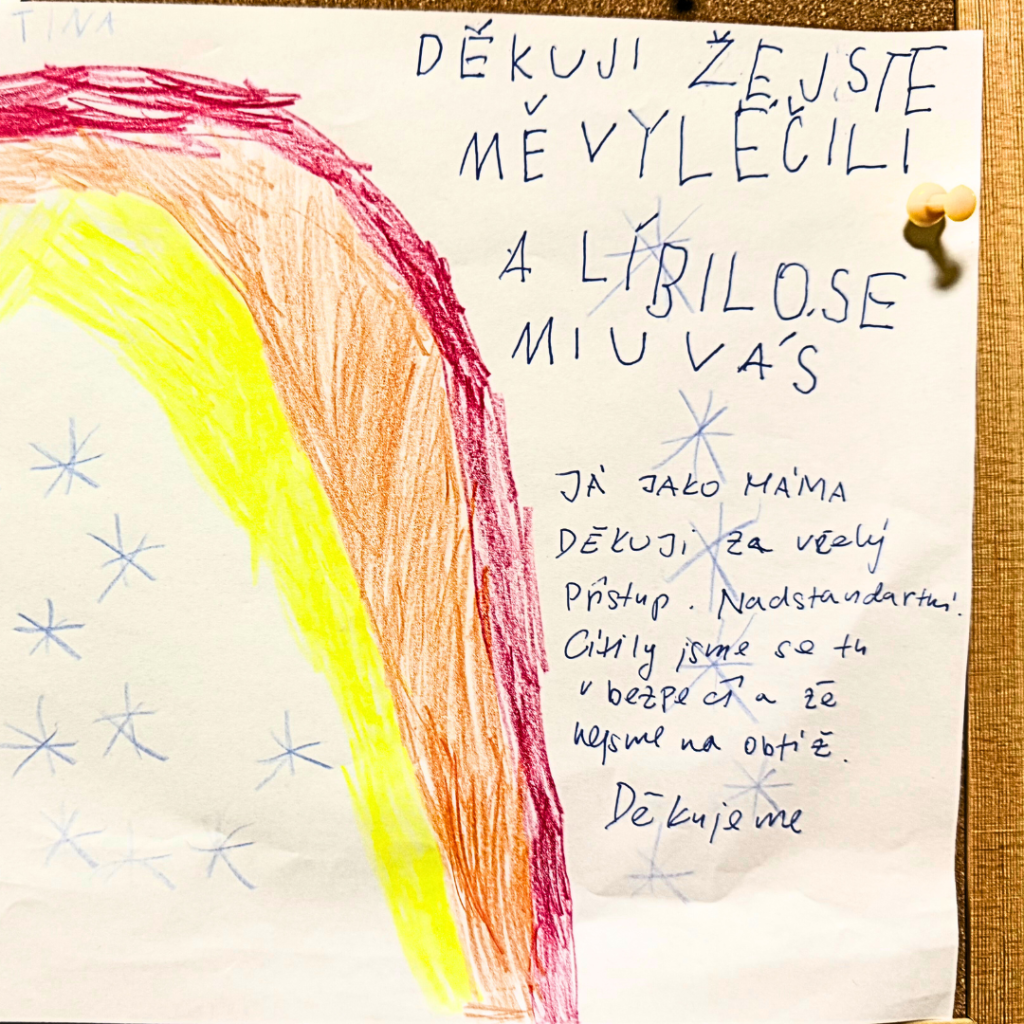 TINA
DĚKUJI ŽE JSTE
MĚ VYLÉČILI
A LÍBILO SE
MI U VÁS
JÁ JAKO MÁMA
DĚKUJI za vřelý
Přístup. Nadstandartní.
Cítily jsme se tu
v bezpečí a že
nejsme na obtíž.
Děkujeme